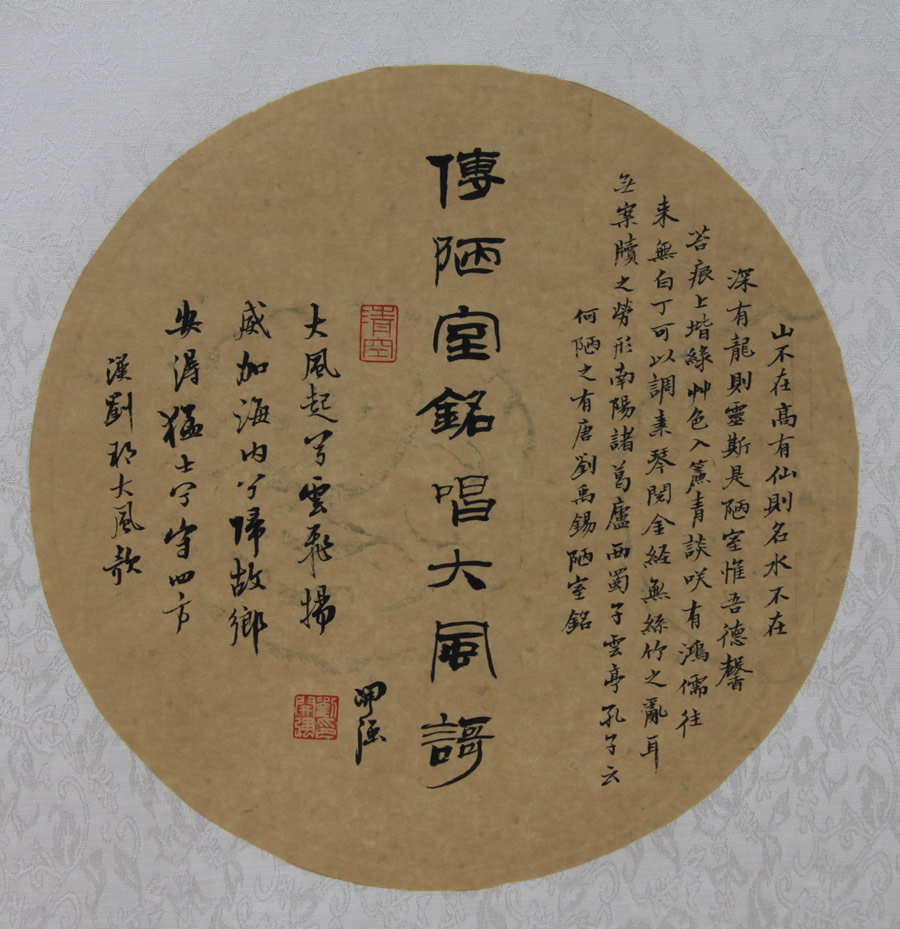 山不在高有仙則名水不在
深有龍則靈斯是陋室惟吾德馨
苔痕上堦綠艸色入簾青談咲有鴻儒往
来無白丁可以調素琴閱金經無絲竹之亂耳
無案牘之勞形南陽諸葛廬西蜀子雲亭孔子云
何陋之有唐劉禹錫陋室銘
傳陋室銘唱大風謌
清空
大風起兮雲飛揚
威加海內兮歸故鄉
安得猛士兮守四方
漢劉邦大風歌
開強
劉開強印